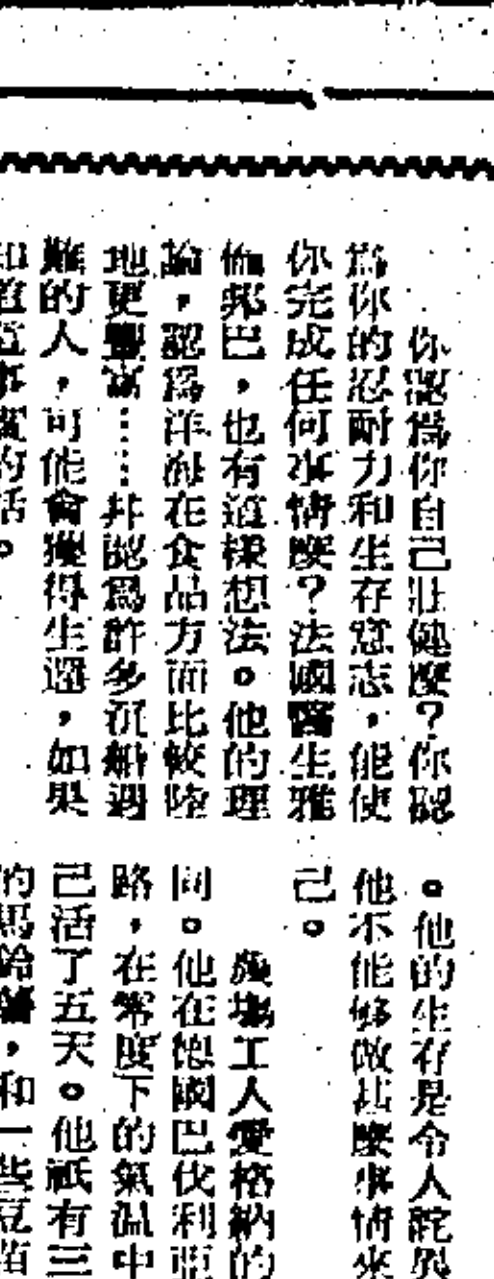 你認為你自己壯健麼?你認
為你的忍耐力和生存意志,能使
你完成任何事情麼?法國醫生雅
倫邦巴,也有這樣想法。他的理
論,認爲洋海在食品方面比較陸
地更豐富……并認爲許多沉船遇
難的人,可能會獲得生還,如果
知道這事實的話。
。他的生存是令人詫異
他不能够做甚麼事情來
己。
農場工人愛格納的
同。他在德國巴伐利亞
路,在零度下的氣温中
己活了五天。他祇有三
的馬鈴薯,和一些豆